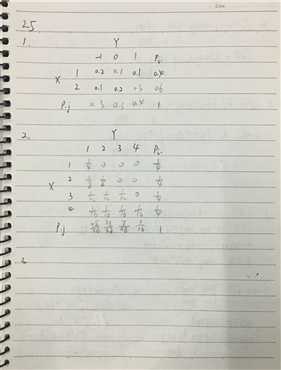 25
1.
Y
-1 0 1 Pi.
X 1 0.2 0.1 0.1 0.4
2 0.1 0.2 0.3 0.6
P.j 0.3 0.3 0.4 1
2.
Y
1 2 3 4 Pi.
1 1/4 0 0 0 1/4
X 2 1/8 1/8 0 0 1/4
3 1/12 1/12 1/12 0 1/4
4 1/16 1/16 1/16 1/16 1/4
P.j 1
3.